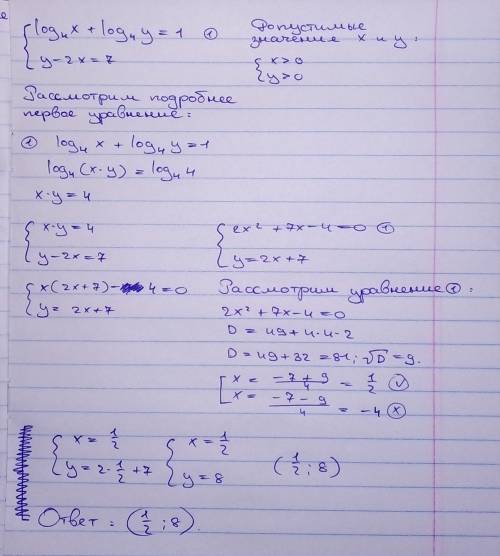 { log₄x + log₄y = 1 ①
{ y-2x=7
Допустимые
значение x и y:
{ x>0
{ y>0
Рассмотрим подробнее
первое уравнение:
① log₄ x + log₄ y = 1
log₄ (x·y) = log₄ 4
x·y = 4
{ x·y = 4
{ y-2x=7
{ 2x² + 7x-4=0 ①
{ y=2x+7
{ x(2x+7)- 4=0
{ y= 2x+7
Рассмотрим уравнение ①:
2x² + 7x-4=0
D = 49+4·4·2
D = 49+32 =81; √D =9.
[ x = (-7+9)/4 = 1/2 ✓
[ x = (-7-9)/4 = -4 ×
{ x = 1/2
{ y=2·1/2+7
{ x = 1/2
{ y=8
(1/2; 8)
Ответ: (1/2; 8).